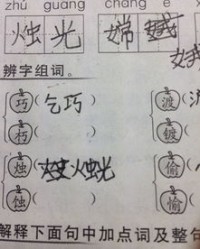 zhú guāng cháng é
烛光 嫦
辨字组词。
巧( 乞巧 ) 渡(
朽( ) 镀(
烛( 烛光 ) 偷(
蚀( ) 愉(
解释下面句中加点词及整句